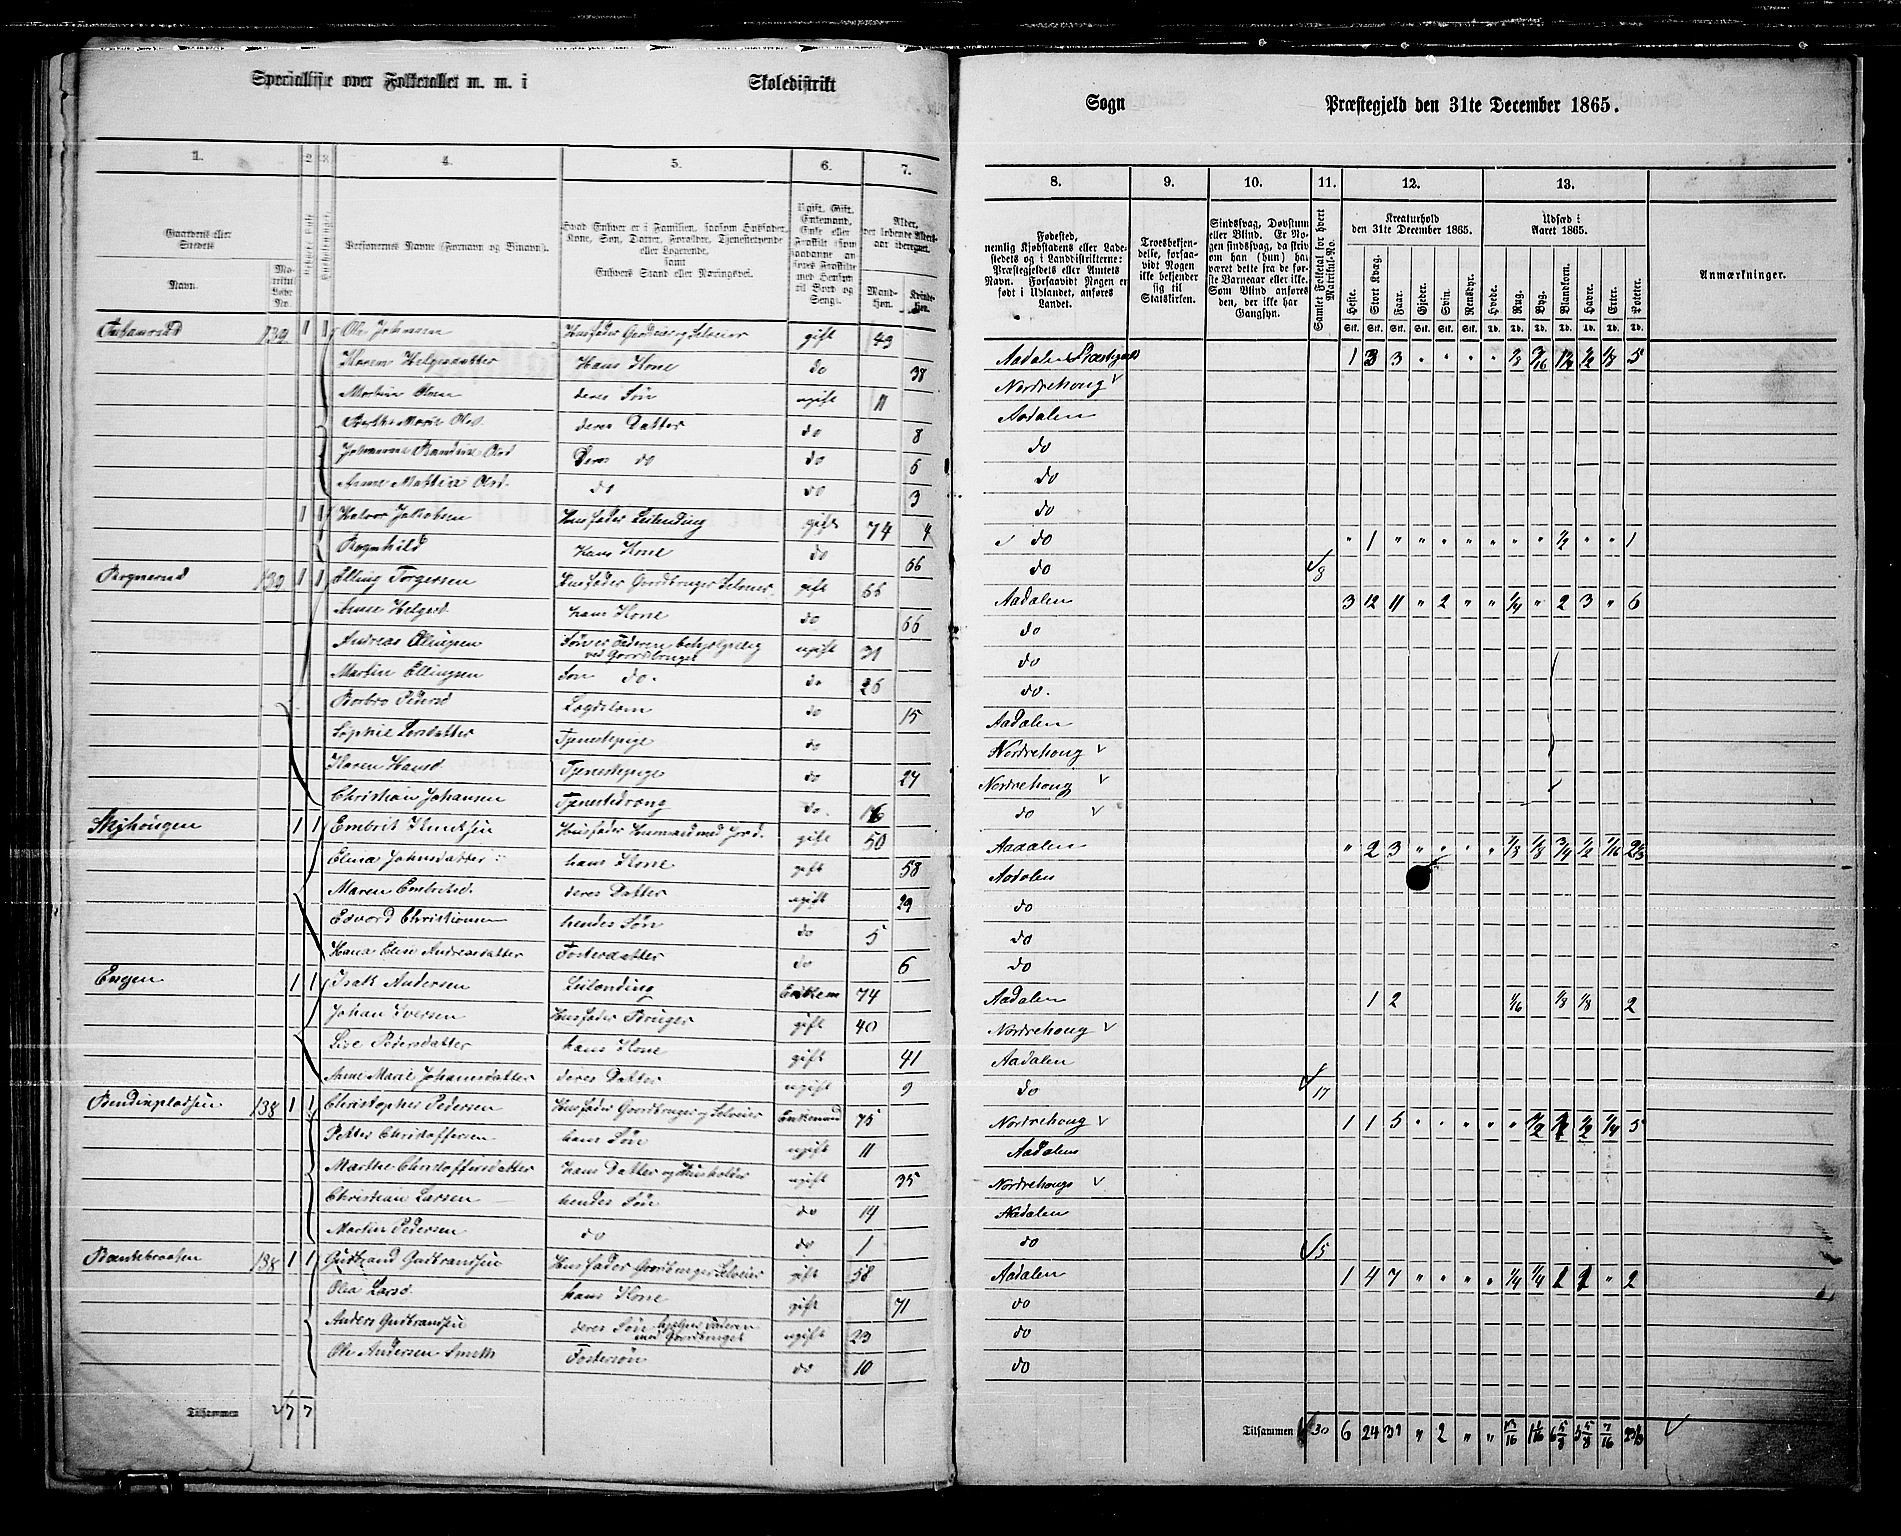 Specialliste over Folketallet m. m. i Skoledistrikt
Sogn Præstegjeld den 31te December 1865.
1. 2 3 4. 5. 6. 7.
8. 9. 10. 11. 12. 13.
Gaardens eller Stedets
Navn.
Matrikul Løbe No.
Personernes Navne (Fornavn og Binavn).
Hvad Enhver er i Familien, saasom Husfader, Kone, Søn, Datter, Forælder, Tjenestetyende eller Logerende, samt Enhvers Stand eller Næringsvei.
Ugift, Gift, Enkemand, Enke eller Fraskilt
Alder, det løbende Alders-aar iberegnet.
Mand-kjøn. Kvinde-kjøn.
Fødested, nemlig Kjøbstadens eller Ladestedets og i Landdistrikterne: Præstegjeldets eller Amtets Navn. Forsaavidt Nogen er født i Udlandet, anføres Landet.
Troesbekjendelse, forsaavidt Nogen ikke bekjender sig til Statskirken.
Sindssvag, Døvstum eller Blind. Er Nogen sindssvag, da skriv om han (hun) har været dette fra de første Barneaar eller ikke. Som Blind anføres den, der ikke har Gangsyn.
Samlet Folketal for hvert Matrikul-No.
Kreaturhold den 31te December 1865.
Heste. Stort Kvæg. Faar. Gjeder. Svin. Rensdyr.
Udsæd i Aaret 1865.
Hvede. Rug. Byg. Blandkorn. Havre. Erter. Poteter.
Anmærkninger.
139 1 1 Ole Johnsen Husfader Gaardeier og Selveier gift 43 Aadalen Præstegjeld 1 3 3 " " " " 1/8 3/16 1/2 1/8 5
Karen Helgesdatter Hans Kone do 38 Nordrehoug
Martin Olsen deres Søn ugift 11 Aadalen
Berthe Marie Olsd. deres Datter do 8 do
Johanne Randine Olsd Deres do do 5 do
Anne Mathia Olsd. do do 3 do
1 1 Halvor Jakobsen Husfader Leilending gift 74 do " 1 " " " " " " " 1/2 " " 1
Ragnhild Hans Kone do 66 do 8
Ragnerud 139 1 1 Elling Torgersen Husfader Gaardbruger Selveier gift 66 Aadalen 3 12 11 " 2 " " 1/4 " 2 3 " 6
Anne Helgesd hans Kone do 66 do
Andreas Ellingsen Søn er Faderen behjelpelig ved Gaardbruget ugift 31 do
Martin Ellingsen Søn do. do 26 do.
Barbro Pedersd Lægdslem do 15 Aadalen
Sophie Larsdatter Tjenestepige do Nordrehoug
Karen Hansd Tjenestepige do 24 Nordrehoug
Christian Johansen Tjenestedreng do. 16 do
Skyhougen 1 1 Embrik Knudsen Husfader Husmand med Jord. gift 50 Aadalen " 2 3 " " " " 1/8 1/8 3/4 1/2 1/16 2 2/3
Elina Johnsdatter hans Kone gift 58 Aadalen
Maren Embriksd. deres Datter ugift 29 do
Edvard Christiansen hendes Søn do 5 do
Hana Elise Andreasdatter Fosterdatter do 6 do
Engen 1 1 Isak Andersen Leilending Enkem 74 Aadalen 1 2 1/16 1/8 1/8 2
Johan Iversen Husfader Bruger gift 40 Nordrehoug
Lise Pedersdatter hans Kone gift 41 Aadalen
Anne Marie Johansdatter deres Datter ugift 9 do 17
Bendixpladsen 138 1 1 Christopher Pedersen Husfader Gaardbruger og Selveier Enkemand 75 Nordrehoug 1 1 5 " " " " " 1/2 1 1/2 1/4 5
Petter Christoffersen hans Søn ugift 11 Aadalen
Marthe Christoffersdatter hans Datter og Husholder ugift 35 Nordrehoug
Christian Larsen hendes Søn do 14 Aadalen
Martin Pedersen do do 1 do 5
Bankebraaten 138 1 1 Gudbrand Gudbrandsen Husfader Gaardbruger Selveier gift 58 Aadalen 1 4 7 " " " " 1/4 1/4 1 1 " 2
Olea Larsd hans Kone gift 71 do
Anders Gudbransen deres Søn hjelper Faderen med Gaardbruget ugift 23 do
Ole Andersen Smeth Fostersøn do 10 do
Tilsammen 7 7
Tilsammen 30 6 24 31 " 2 " " 13/16 1 1/16 6 5/8 5 5/8 7/16 23 2/3